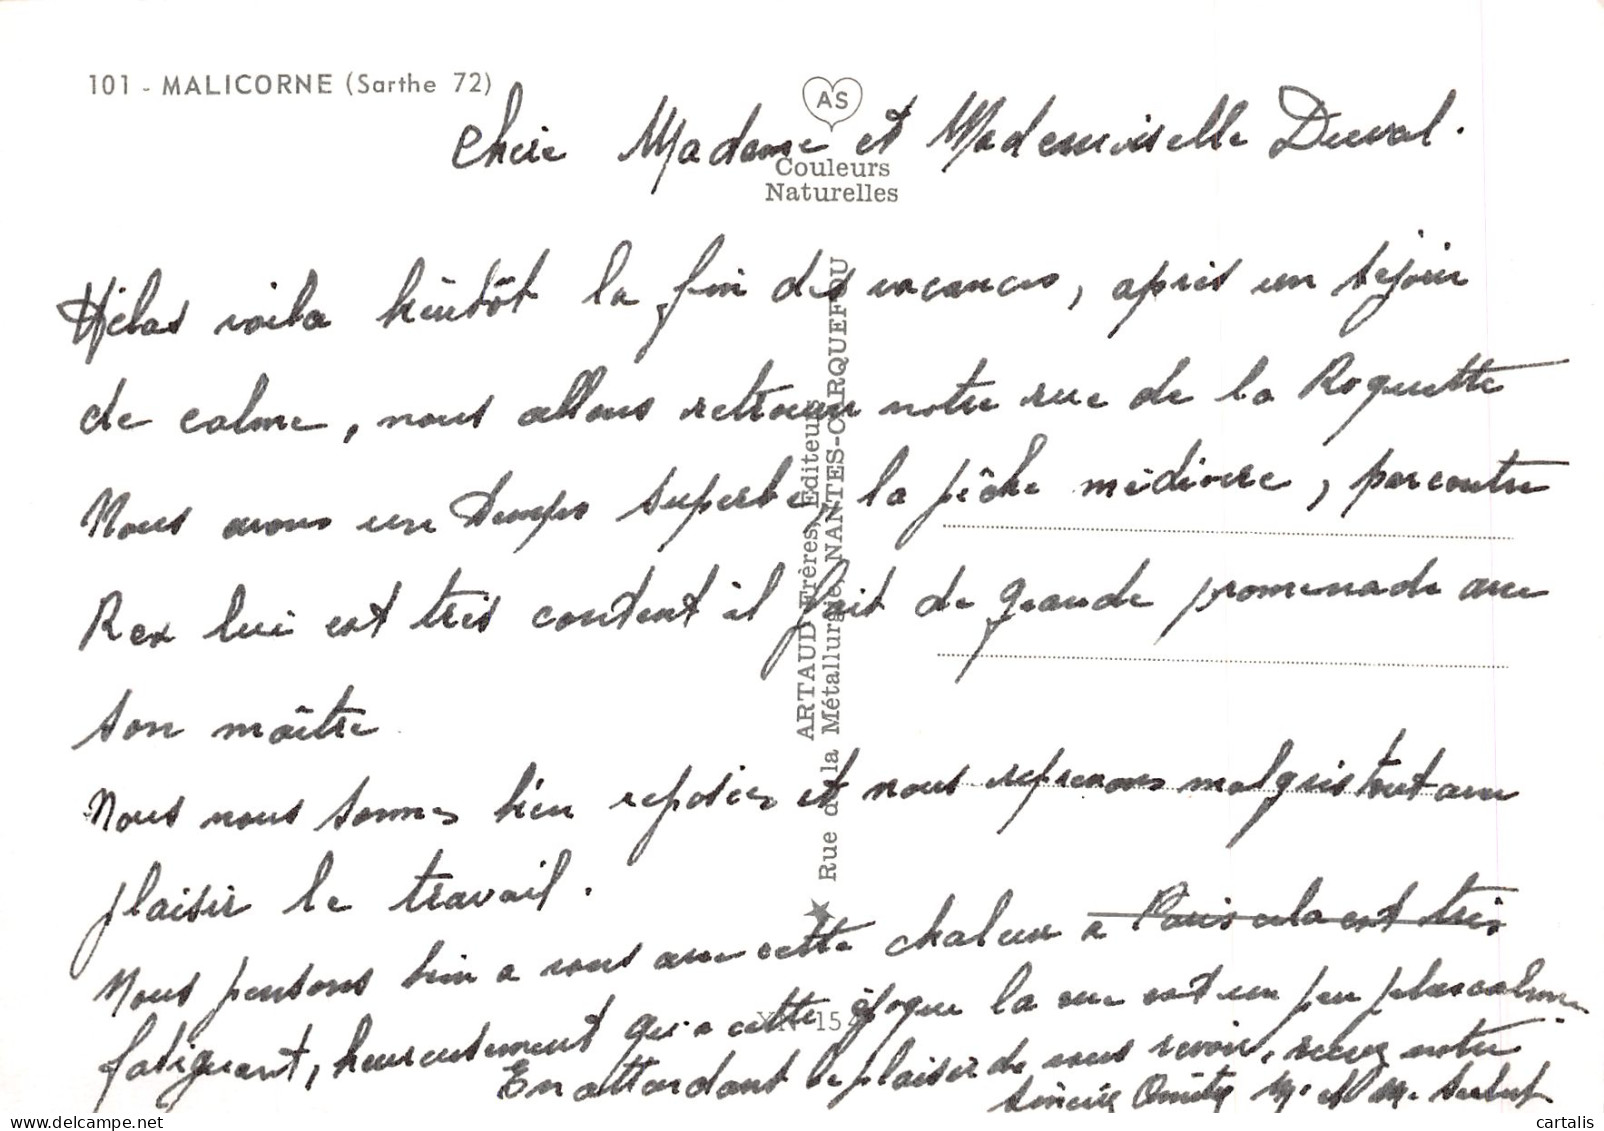 101 - MALICORNE (Sarthe 72)
AS
Couleurs
Naturelles
Chère Madame et Mademoiselle Duval.
Hélas voila bientôt la fin des vacances, après un séjour
de calme, nous allons retrouver notre rue de la Roquette
Nous avons un temps superbe, la pêche médiocre, parcontre
Rex lui est très content il fait de grande promenade avec
son maître
Nous nous sommes bien reposées et nous reprenons malgrés tout avec
plaisir le travail.
Nous pensons bien a vous avec cette chaleur a Paris cela est très
fatiguant, heureusement qu'a cette époque la rue est un peu plus calme
En attendant le plaisir de vous revoir, recevez notre
sincère Amitié Mr et Mme
ARTAUD Frères, Editeurs
Rue de la Métallurgie, NANTES-CARQUEFOU
cartalis
delcampe.net